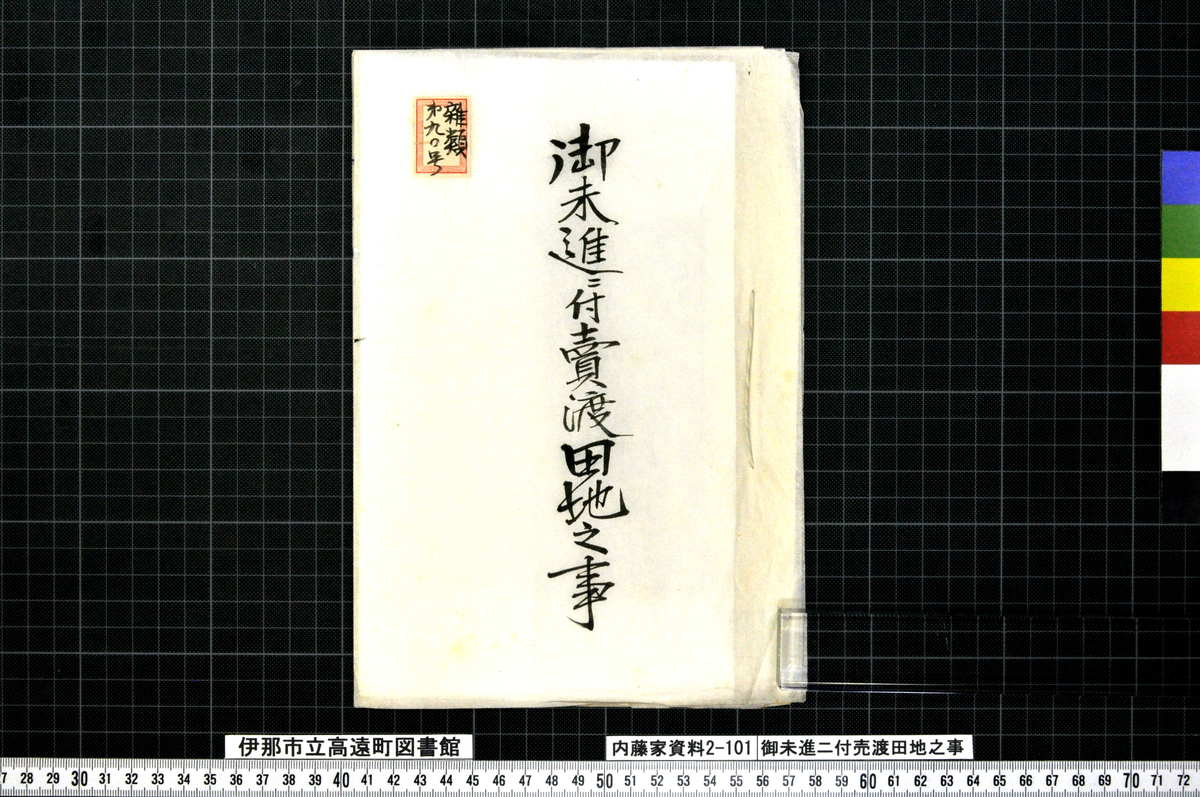 御未進ニ付賣渡田地之事
雜類
第九〇号
伊那市立高遠町図書館
内藤家資料2-101 御未進ニ付売渡田地之事
7 28 29 30 31 32 33 34 35 36 37 38 39 40 41 42 43 44 45 46 47 48 49 50 51 52 53 54 55 56 57 58 59 60 61 62 63 64 65 66 67 68 69 70 71 72